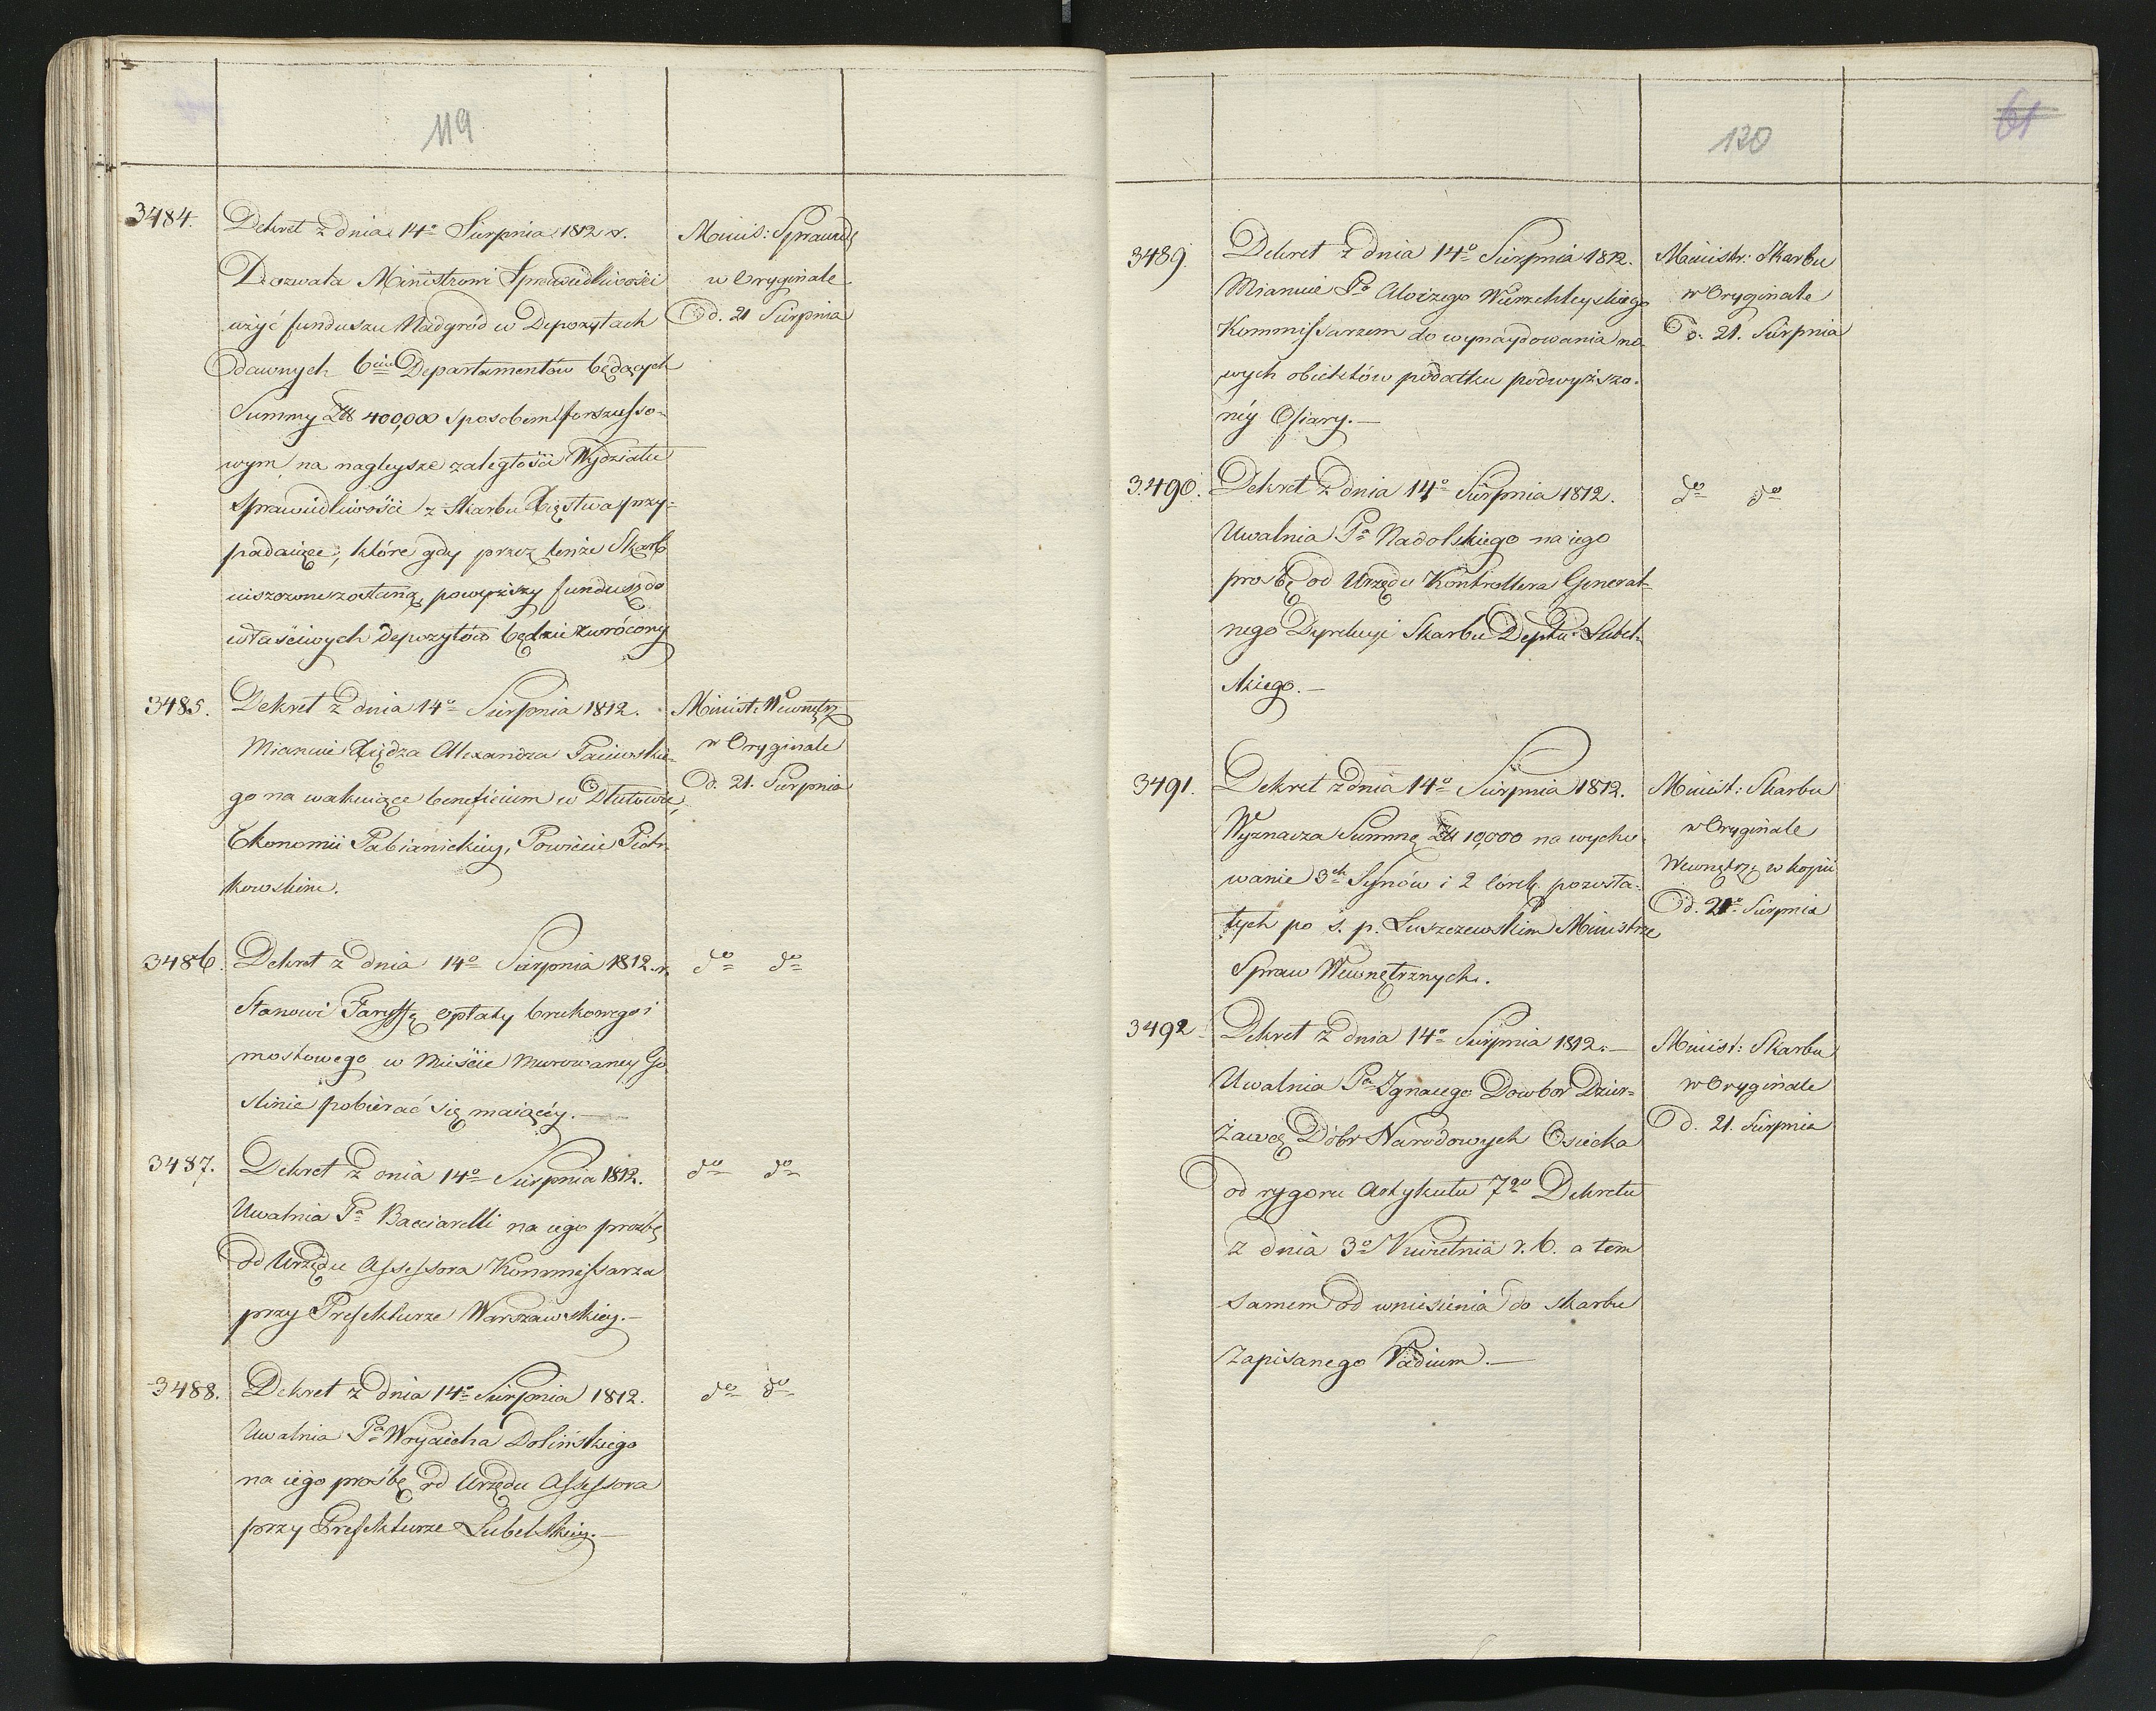 119
3484. Dekret z dnia 14o Sierpnia 1812 r. Minis: Sprawdl
Dozwala Ministrowi Sprawiedliwości w Oryginale
użyć funduszu Nadgród w Depozytach Dd. 21 Sierpnia
dawnych 6ciu Departamentów będących
Summy Zł 400,000 sposobem forszusso-
wym na nagleysze zaległości Wydziału
Sprawiedliwości z Skarbu Xięstwa przy-
padaiące, które gdy przez tenże Skarb
uiszczone zostaną, powyższy fundusz do
właściwych Depozytów będzie zwrócony
3485. Dekret z dnia 14o Sierpnia 1812. Minist: Wewnętrz
Mianuie Xiędza Alexandra Paiewskie- w Oryginale
go na wakuiące beneficium w Dłutowie, Dd. 21. Sierpnia
Ekonomii Pabianickiey, Powiecie Piotr-
kowskim.
3486. Dekret z dnia 14o Sierpnia 1812 r. do do
Stanowi Taryffę opłaty brukowego i
mostowego w Mieście Murowaney Go
slinie pobierać się maiącéy.
3487. Dekret z dnia 14o Sierpnia 1812. do do
Uwalnia Pa Bacciarelli na iego proźbę
od Urzędu Assessora Kommissarza
przy Prefekturze Warszawskiey.
3488. Dekret z dnia 14o Sierpnia 1812. do do
Uwalnia Pa Woyciecha Dolińskiego
na iego prośbę od Urzędu Assessora
przy Prefekturze Lubelskiey.
120
61
3489. Dekret z dnia 14o Sierpnia 1812. Ministr: Skarbu
Mianuie Pa Aloizego Wierzchleyskiego w Oryginale
Kommissarzem do wynaydowania no- D. 21. Sierpnia
wych obiektów podatku podwyższo-
néy Ofiary.—
3490. Dekret z dnia 14o Sierpnia 1812. do do
Uwalnia Pa Nadolskiego na iego
prośbę od Urzędu Kontrollera General-
nego Dyrekcyi Skarbu Deptu Lubel-
skiego.—
3491. Dekret z dnia 14o Sierpnia 1812. Minist: Skarbu
Wyznacza Summę Zł 10,000 na wycho- w Oryginale
wanie 3ch Synów i 2 córek pozosta- Wewnętrz: w kopii
łych po ś. p. Łuszczewskim Ministrze Dd. 21o Sierpnia
Spraw Wewnętrznych.
3492 Dekret z dnia 14o Sierpnia 1812.— Minist: Skarbu
Uwalnia Pa Ignacego Dowbor Dzier- w Oryginale
żawcę Dóbr Narodowych Osiecka D. 21. Sierpnia
od rygoru Artykułu 7go Dekretu
z dnia 3o Kwietnia r. b. a tem
samem od wniesienia do skarbu
Zapisanego Vadium.—